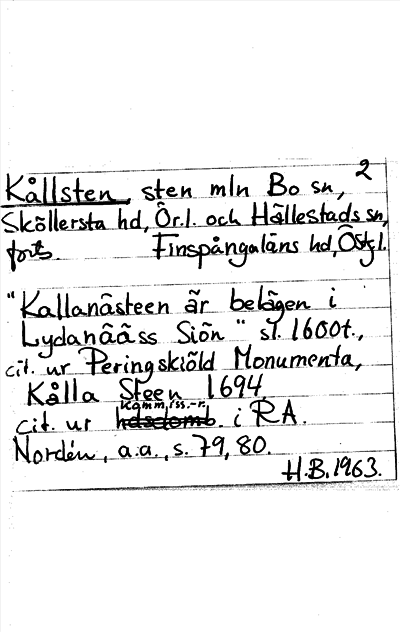 2
Kållsten, sten mln Bo sn,
Sköllersta hd, Ör.l. och Hällestads sn,
forts. Finspångaläns hd, Östg.l.
"Kallanästeen är belägen i
Lydanääss Siön" sl. 1600t.,
cit. ur Peringskiöld Monumenta,
Kålla Steen 1694,
Kamm.rss.-r.
cit. ur hdsdomb. i RA.
Nordén, a.a., s. 79, 80.
H.B. 1963.